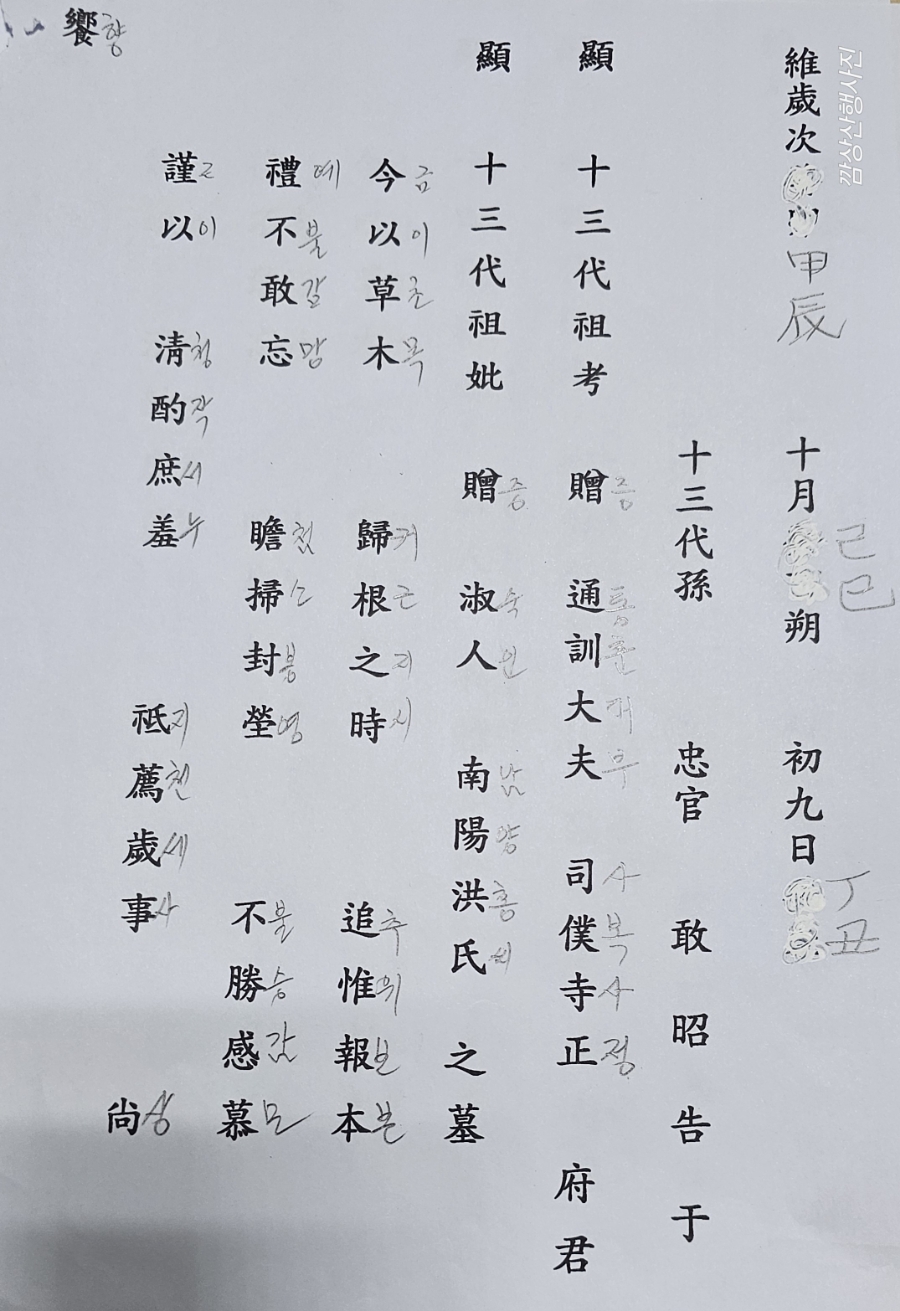 維歲次 甲辰 十月 己巳 朔 初九日 丁丑
十三代孫 忠官 敢昭告于
顯 十三代祖考 贈 通訓大夫 司僕寺正 府君
증 통훈대부 사복사정
顯 十三代祖妣 贈 淑人 南陽洪氏 之墓
증 숙인 남양홍씨
今以草木 歸根之時 追惟報本
금이초목 귀근지시 추위보본
禮不敢忘 瞻掃封塋 不勝感慕
예불감망 첨소봉영 불승감모
謹以 清酌庶羞 祗薦歲事 尚
근이 청작서수 지천세사 상
饗
향
깜상산행사진